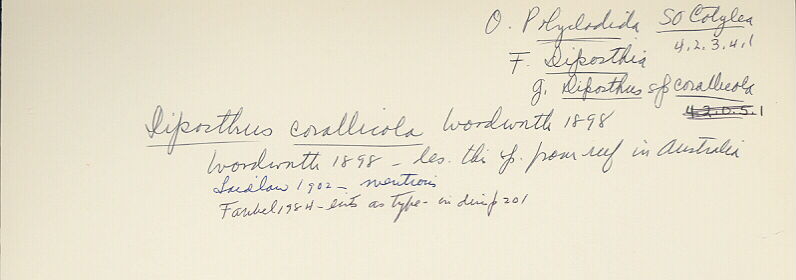 O. Polycladida SO Cotylea
4.2.3.4.1
F. Diposthia
g. Diposthus sp corallicola
4.2.0.5.1
Diposthus corallicola Wordworth 1898
Wordworth 1898 - des. this sp. from reef in Australia
Laidlaw 1902 - mentions
Faubel 1984 - lists as type - in dim p 201